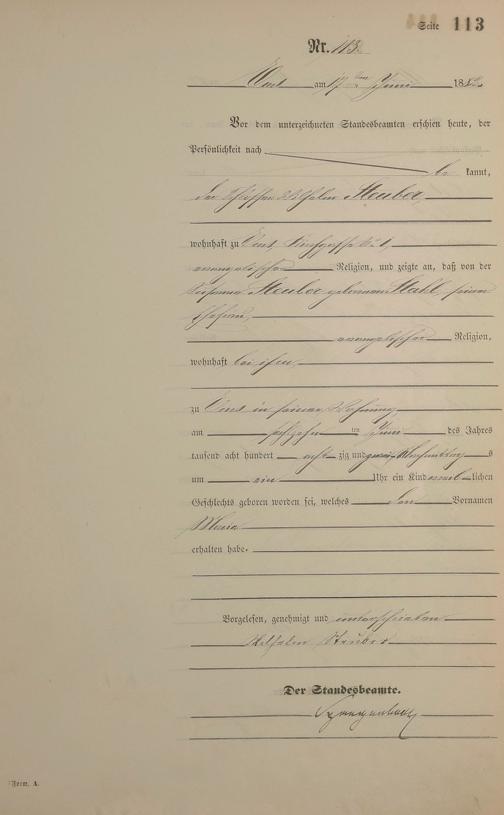 Seite 113
Nr. 113.
Ems am 17 ten Juni 188
Vor dem unterzeichneten Standesbeamten erschien heute, der
Persönlichkeit nach
be kannt,
der Wilhelm Steuber,
wohnhaft zu Ems, Kirchgasse No 1,
evangelischer Religion, und zeigte an, daß von der
Steuber geborenen Stahl, seiner
Ehefrau,
evangelischer Religion,
wohnhaft bei ihm,
zu Ems in seiner Wohnung,
am ten Juni des Jahres
tausend acht hundert acht zig und zwei Nachmittag s
um ein Uhr ein Kind weib lichen
Geschlechts geboren worden sei, welches den Vornamen
Maria
erhalten habe.
Vorgelesen, genehmigt und unterschrieben
Wilhelm Steuber
Der Standesbeamte.
Form. A.